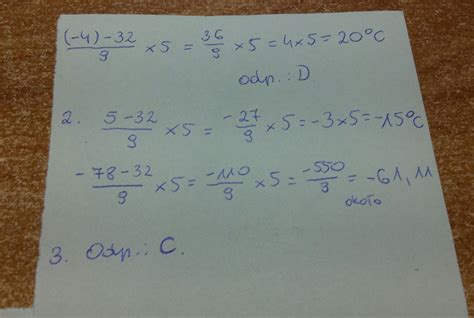 (-4)-32/9 × 5 = 36/9 × 5 = 4 × 5 = 20°C
odp.: D
2. 5-32/9 × 5 = -27/9 × 5 = -3 × 5 = -15°C
-78-32/9 × 5 = -110/9 × 5 = -550/9 = -61,11
około
3. Odp.: C.